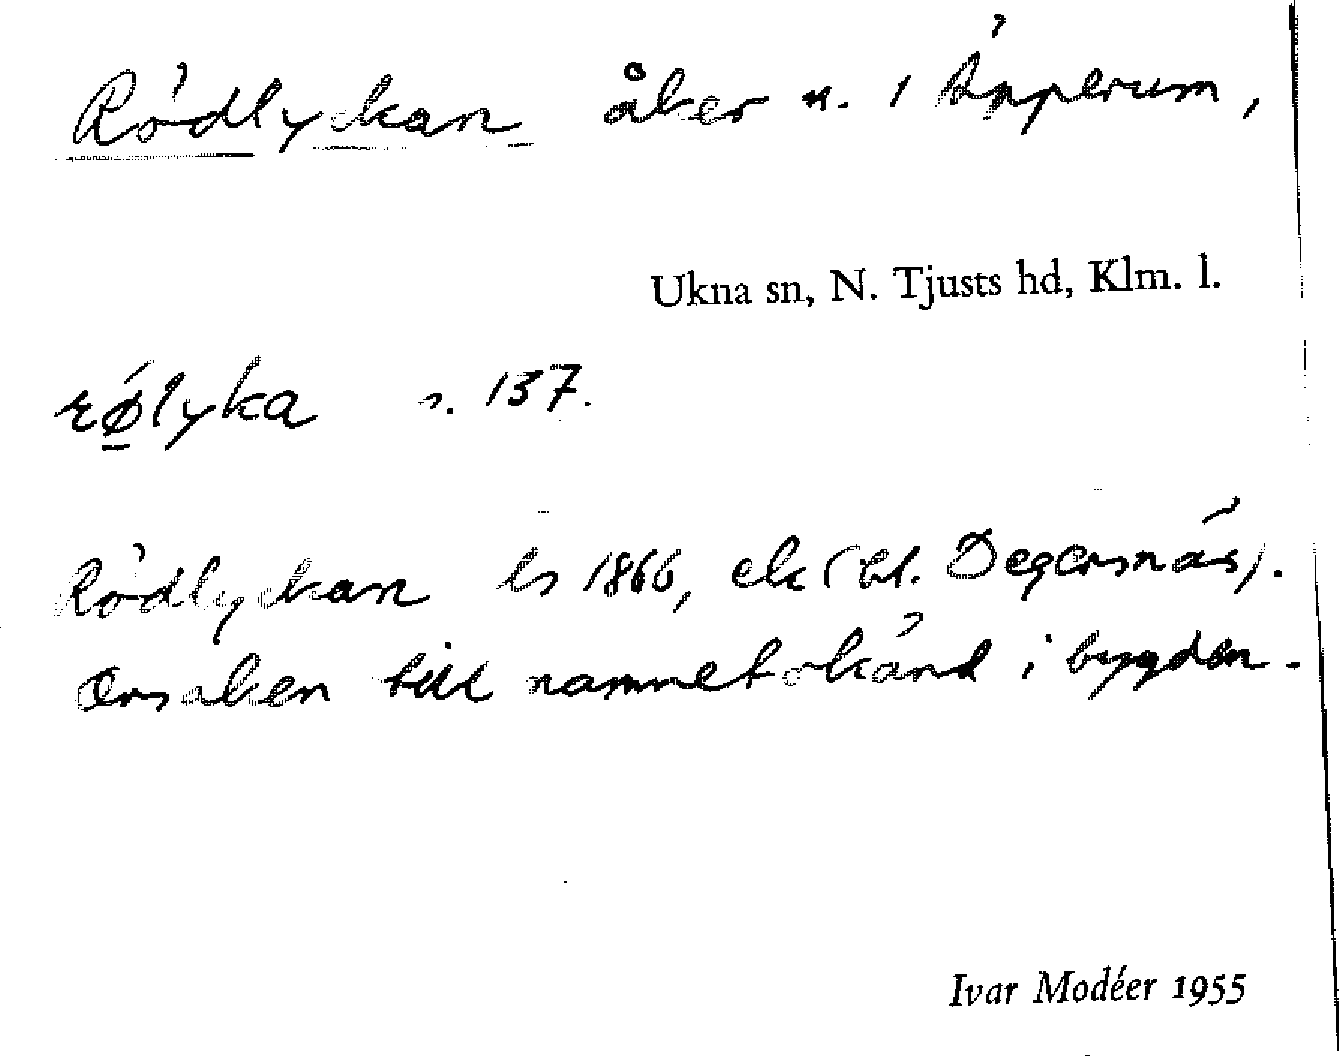 Rödlyckan åker n. i Äpplerum,
Ukna sn, N. Tjusts hd, Klm. l.
rǿ̱lyka s. 137.
Rödlyckan ls 1866, ek (bl. Degersnäs).
Orsaken till namnet okänd i bygden.
Ivar Modéer 1955